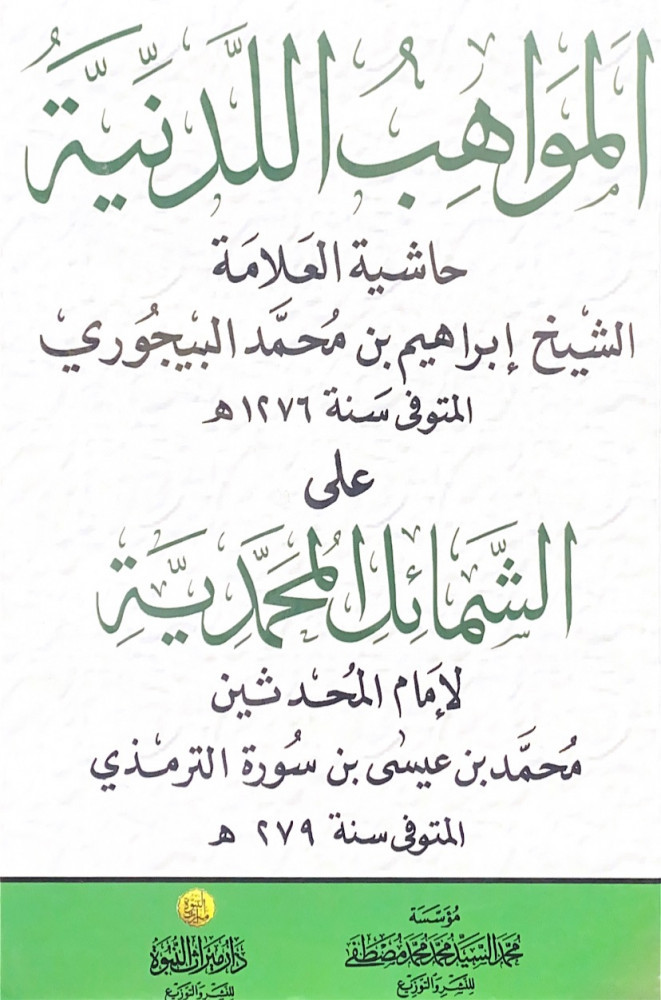 المَوَاهِبُ اللَّدنِّيَّةُ
حاشية العَلامَة
الشيخ إبراهيم بن مُحمَّد البيجُوري
المتوفى سَنة ١٢٧٦ ه
على
الشَّمائِل المُحَمَّدِيَّةِ
لإمَام المُحدثين
مُحمَّد بن عيسى بن سُورة الترمذي
المتوفى سنة ٢٧٩ ه
مؤسَسَة
محمد السَّيِّد محمد محمد مصْطفى
للنشر والتوزيع
دَار ميراث النُّبوة
للنشر والتوزيع